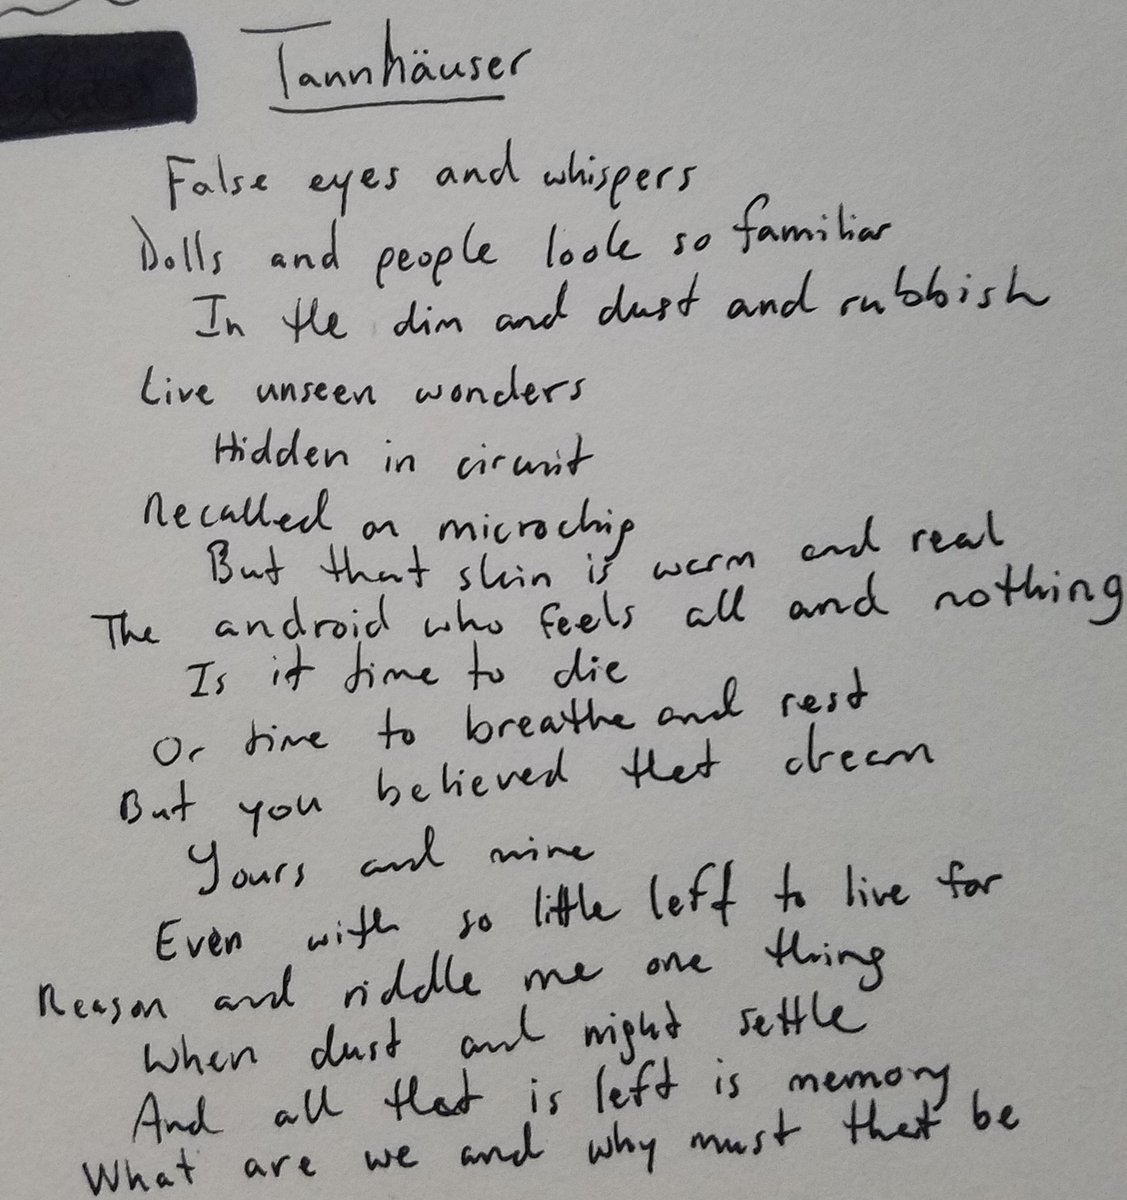 Tannhäuser
False eyes and whispers
Dolls and people look so familiar
In the dim and dust and rubbish
Live unseen wonders
Hidden in circuit
Recalled on microchip
But that skin is warm and real
The android who feels all and nothing
Is it time to die
Or time to breathe and rest
But you believed that dream
Yours and mine
Even with so little left to live for
Reason and riddle me one thing
When dust and night settle
And all that is left is memory
What are we and why must that be